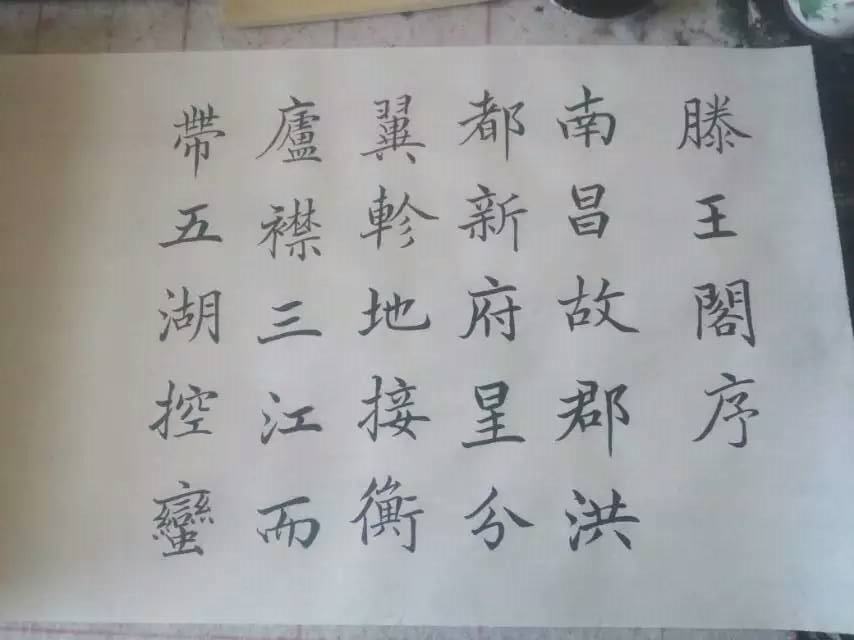 滕王閣序
南昌故郡洪
都新府星分
翼軫地接衡
廬襟三江而
帶五湖控蠻